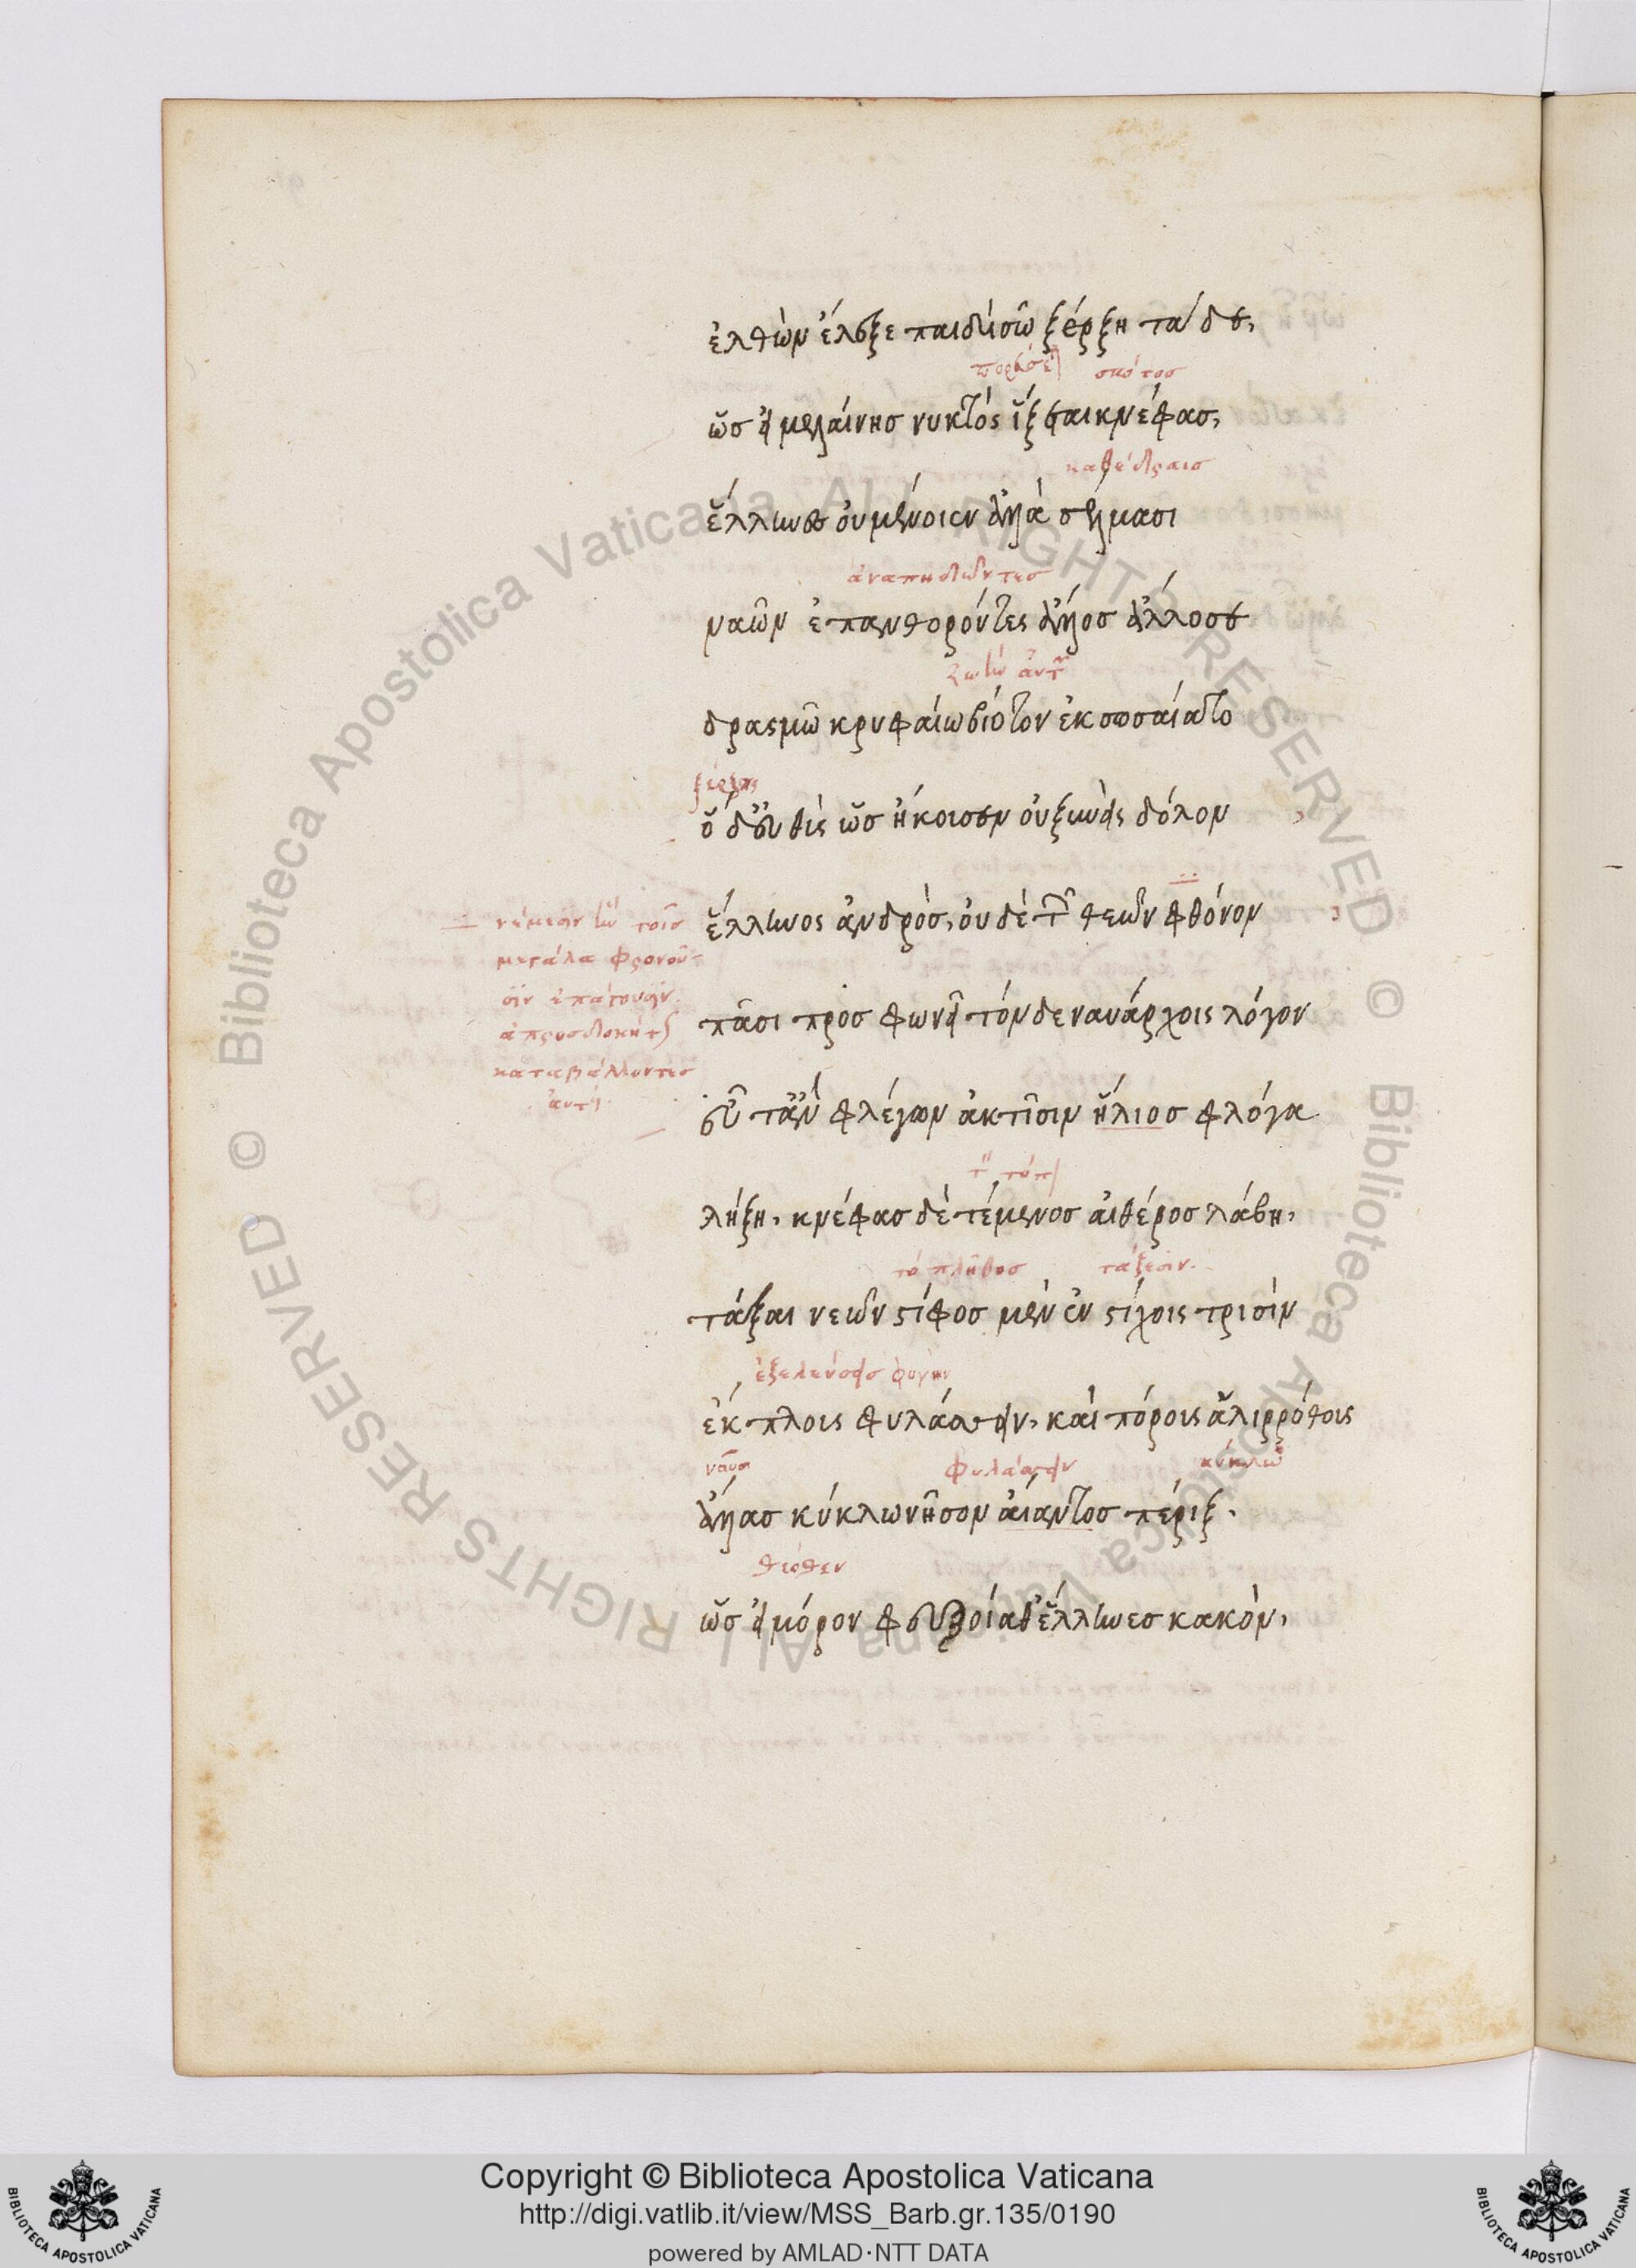 ἐλθὼν ἔλεξε παιδὶ σῶ ξέρξη τάδε,
σκότος
ὡς εἰ μελαίνης νυκτὸς ἵξεται κνέφας,
καθέδραις
ἕλληνες οὐ μένοιεν ἀλλὰ σέλμασι
ἀναπηδῶντες
ναῶν ἐπανθορόντες ἄλλος ἄλλοσε
ζωὴν
δρασμῶ κρυφαίω βίοτον ἐκσωσαίατο
ξέρξης
ὁ δ' εὐθὺς ὡς ἤκουσεν οὐ ξυνεὶς δόλον
ἕλληνος ἀνδρὸς, οὐδὲ τὸν θεῶν φθόνον
νέμεσιν ἣν τοῖς
μεγάλα φρονοῦ-
σιν ἐπάγουσιν
ἀπροσδοκήτως
καταβάλλοντες
πᾶσι πρὸς φωνεῖ τόνδε ναυάρχοις λόγον
εὖτ' ἂν φλέγων ἀκτῖσιν ἥλιος φλόγα
λήξη, κνέφας δὲ τέμενος αἰθέρος λάβη,
τὸ πλῆθος τάξεσιν.
τάξαι νεῶν στίφος μὲν ἐν στίχοις τρισὶν
ἐξελεύσεις φυγὴν
ἔκπλοις φυλάσσειν, καὶ πόροις ἁλιρρόθοις
ναῦς φυλάσσειν κύκλω
ἄλλας κύκλω νῆσον αἴαντος πέριξ.
θεόθεν
ὡς εἰ μόρον φευξοίαθ' ἕλληνες κακὸν,
Copyright © Biblioteca Apostolica Vaticana
http://digi.vatlib.it/view/MSS_Barb.gr.135/0190
powered by AMLAD·NTT DATA
BIBLIOTECA APOSTOLICA VATICANA
BIBLIOTECA APOSTOLICA VATICANA
© Biblioteca Apostolica Vaticana ALL RIGHTS RESERVED
© Biblioteca Apostolica Vaticana ALL RIGHTS RESERVED